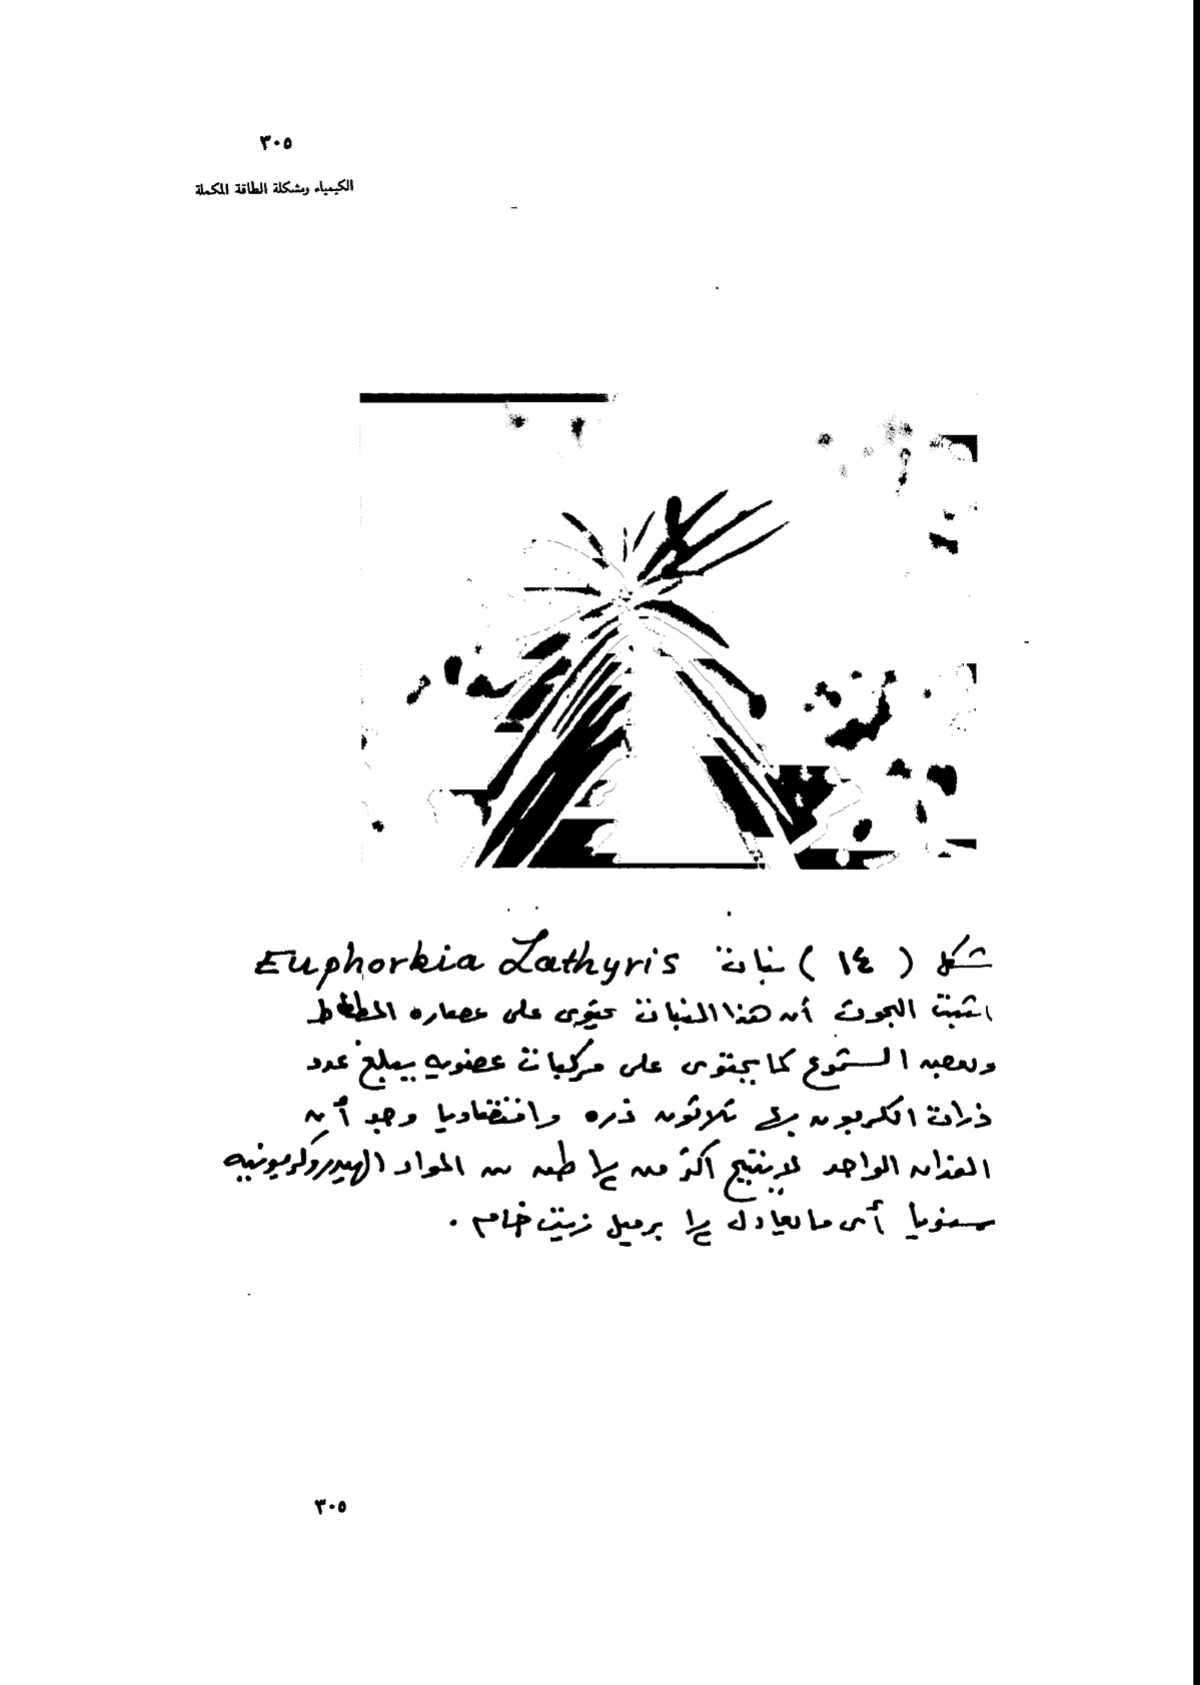 ٣٠٥
الكيمياء ومشكلة الطاقة المكملة
شكل ( ١٤ ) نبات Euphorbia Lathyris
اثبتت البحوث أن هذا النبات يحتوى على عصاره المطاط
وبعض الشموع كما يحتوى على مركبات عضويه يبلغ عدد
ذرات الكربون بها ثلاثون ذره واقتصاديا وجد أن
الفدان الواحد لا ينتج أكثر من طن من المواد الهيدروكربونيه
سنويا أى ما يعادل برميل زيت خام .
٣٠٥